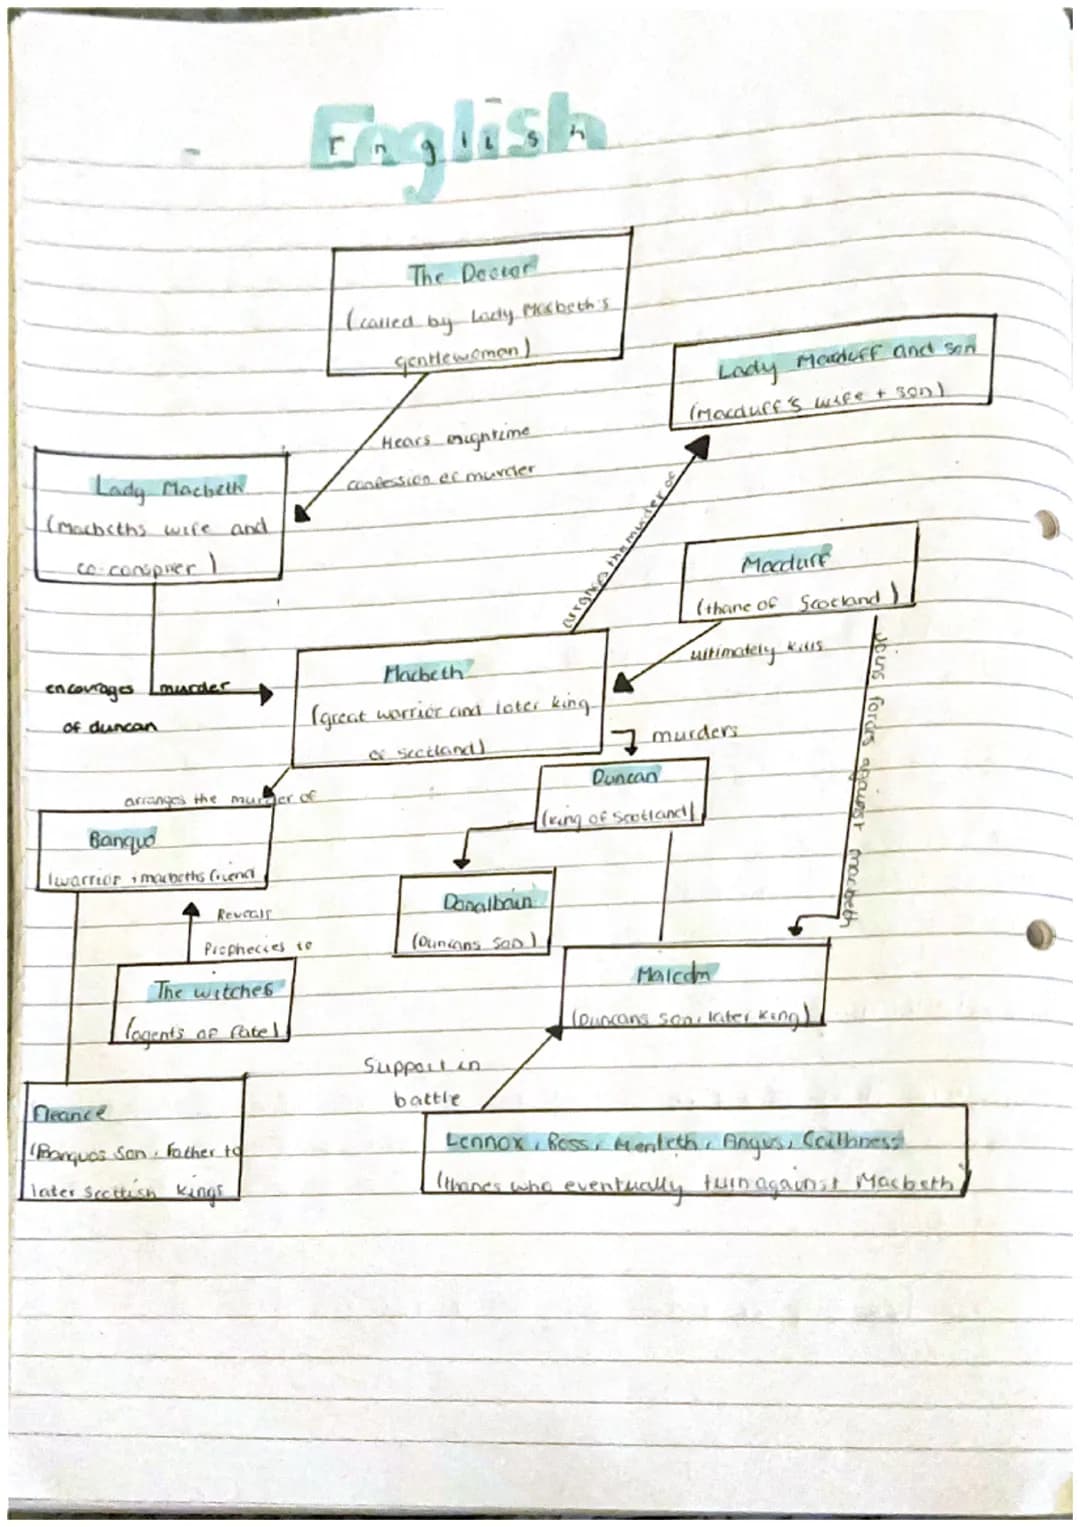 English
The Doctor
(called by Lady Macbeth's
gentlewoman)
Lady Macduff and son
(Macduff's wife + son)
Hears nightime
confession of murder
Lady Macbeth
(Macbeths wife and
co-conspirer)
arranges the murder of
Macduff
(thane of Scotland)
ultimately kills
joins forces against macbeth
encourages murder
of duncan
Macbeth
(great warrior and later king
of scotland)
murders
Duncan
(king of Scotland)
arranges the murder of
Banquo
(warrior + macbeths friend
Donalbain
(Duncans son)
Reveals
Prophecies to
The witches
(agents of fate)
Malcom
(Duncans son, later king)
Support in
battle
Fleance
(Banquos Son, Father to
later Scottish kings
Lennox, Ross, Menteth, Angus, Caithness
(thanes who eventually turn against Macbeth)